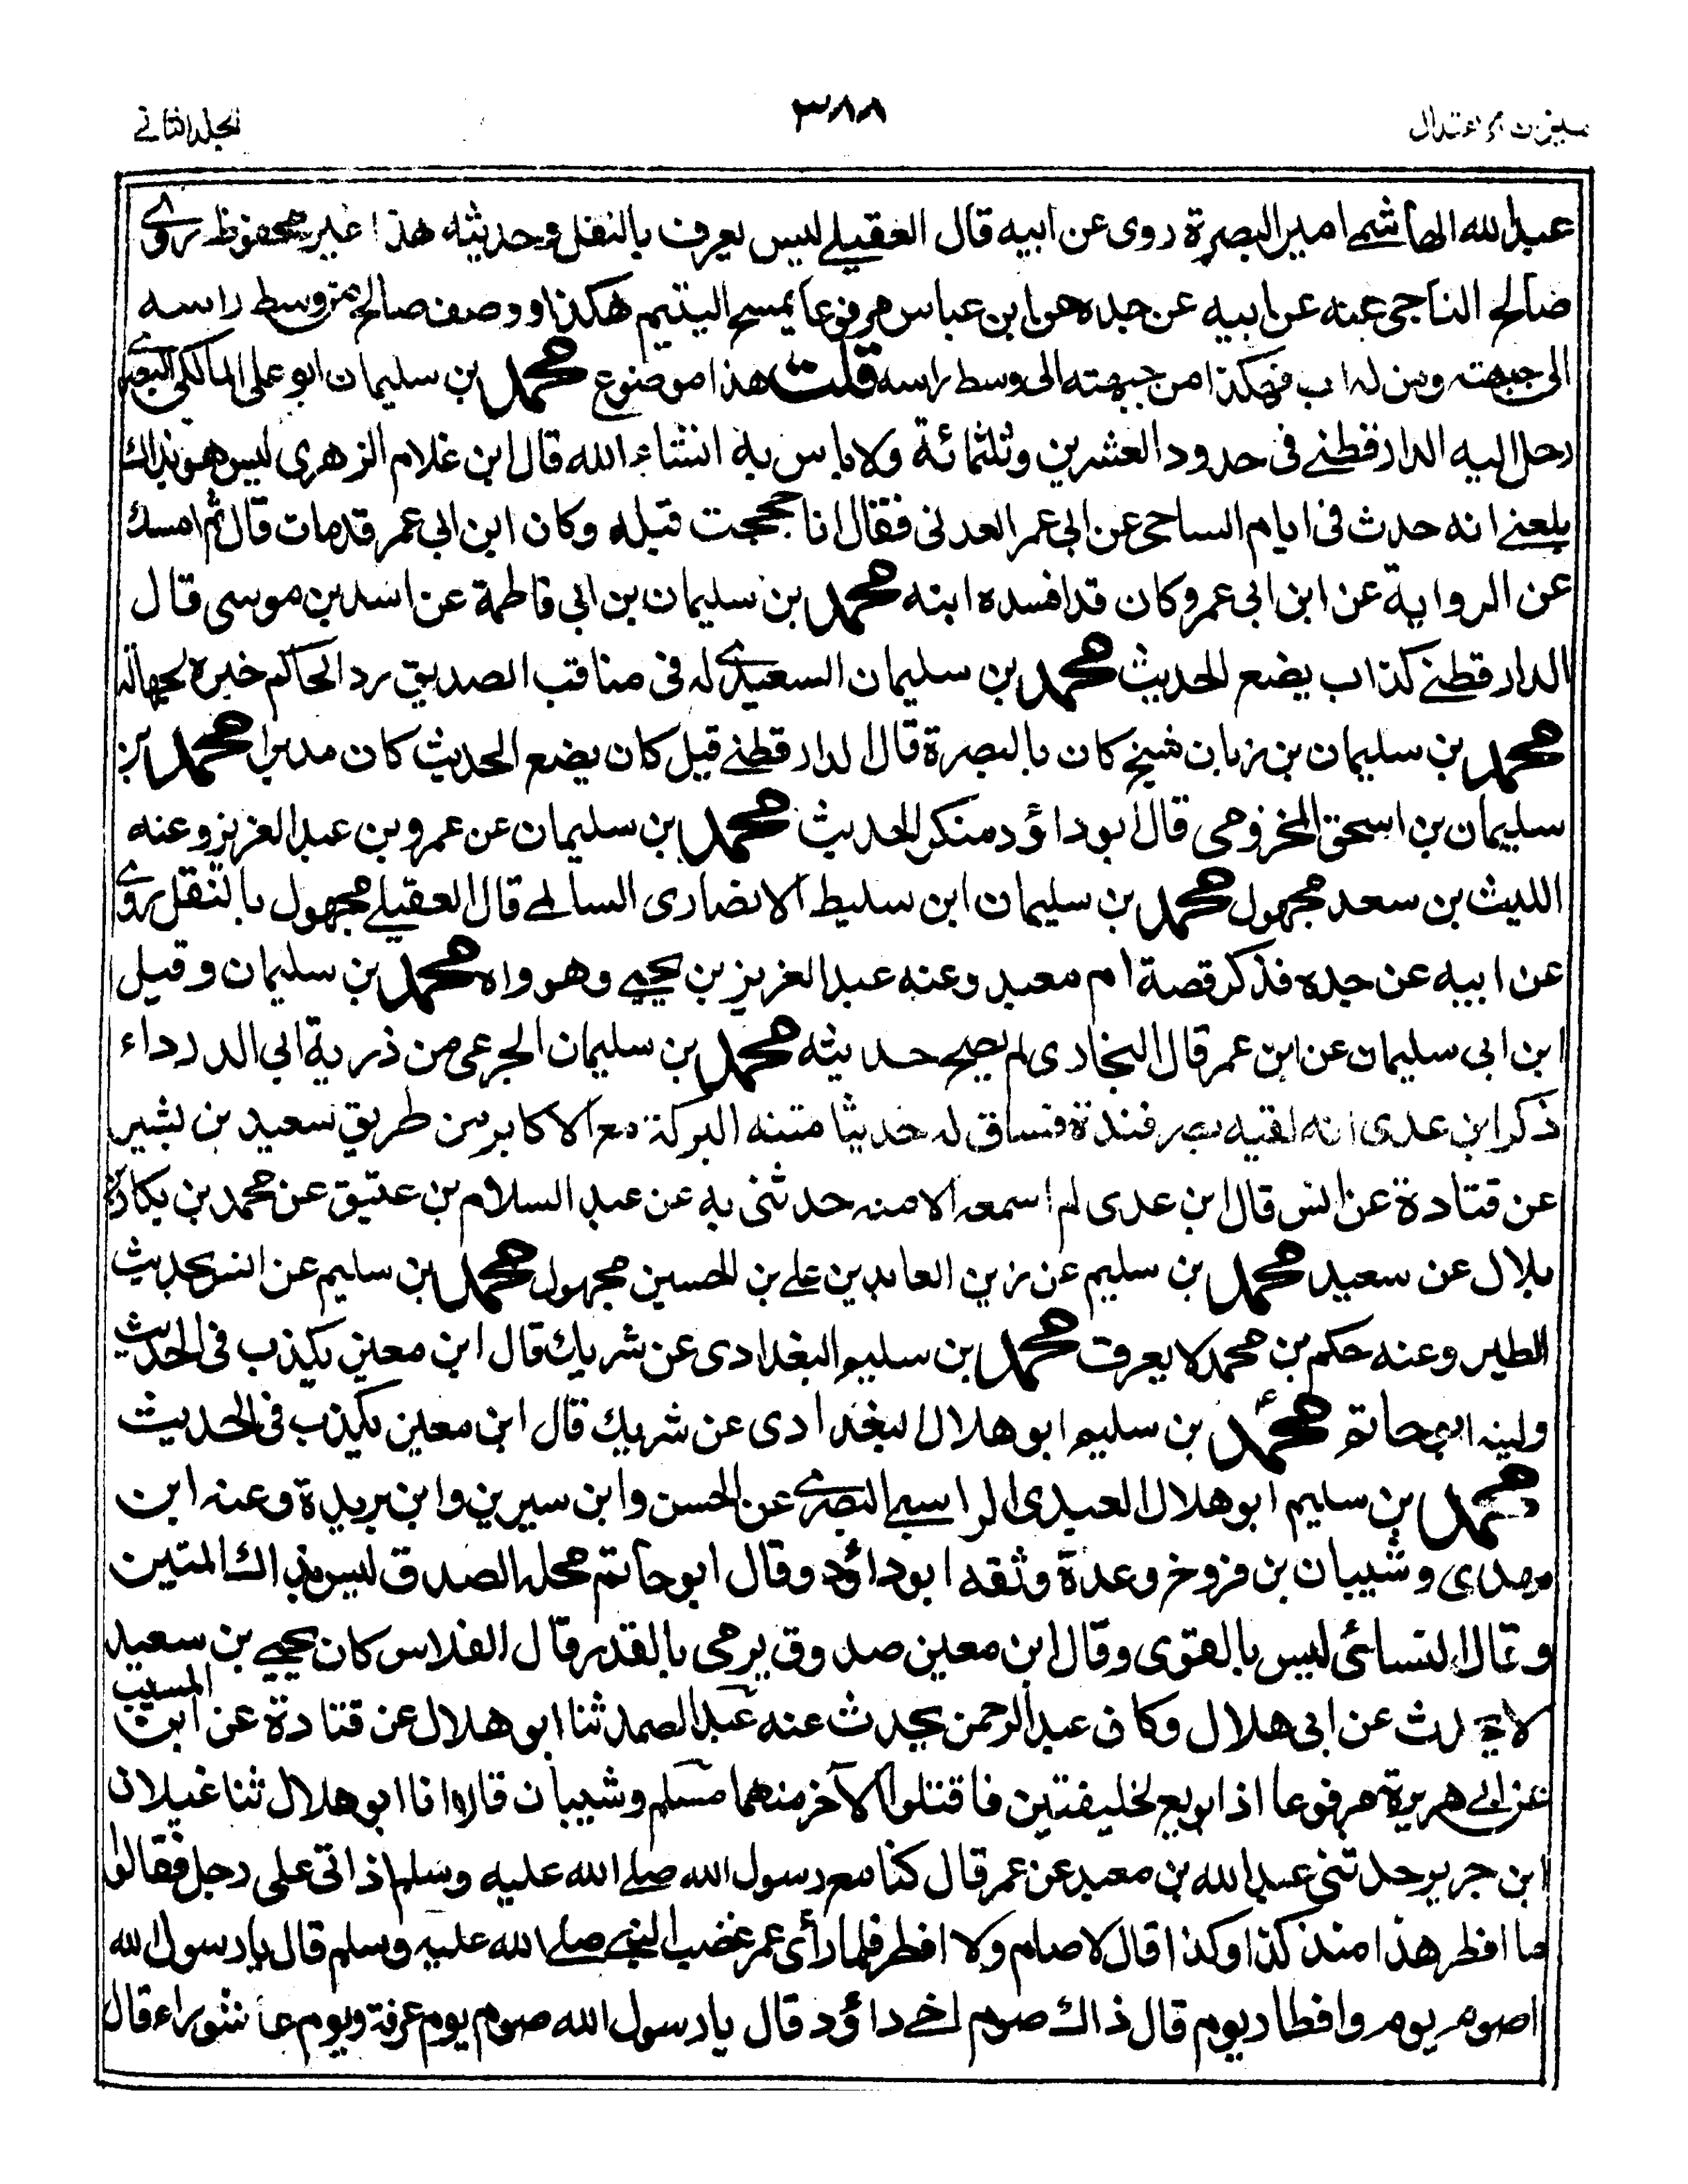 ميزان الاعتدال
٣٨٨
المجلد الثاني
عبد الله الهاشمي امير البصرة روى عن ابيه قال العقيلي ليس يعرف بالنقل وحديثه هذا غير محفوظ روى
صالح الناجي عنه عن ابيه عن جده عن ابن عباس مرفوعا يمسح اليتيم هكذا ووصف صالح من وسط راسه
الى جبهته ومن له اب فهكذا من جبهته الى وسط راسه قلت هذا موضوع محمد بن سليمان ابو على المالكي البصري
رحل اليه الدارقطني في حدود العشرين وثلثمائة ولا باس به انشاء الله قال ابن غلام الزهري ليس هو بذاك
بلغني انه حدث في ايام الساجي عن ابي عمر العدني فقال انا حججت قبله وكان ابن ابي عمر قد مات قال ثم امسك
عن الرواية عن ابن ابي عمر وكان قد افسده ابنه محمد بن سليمان بن ابي فاطمة عن اسد بن موسى قال
الدارقطني كذاب يضع الحديث محمد بن سليمان السعيدي له في مناقب الصديق رد الحاكم خبره لجهالته
محمد بن سليمان بن زبان شيخ كان بالبصرة قال الدارقطني قيل كان يضع الحديث كان مدبرا محمد بن
سليمان بن اسحق المخزومي قال ابو داؤد منكر الحديث محمد بن سليمان عن عمرو بن عبد العزيز وعنه
الليث بن سعد مجهول محمد بن سليمان ابن سليط الانصاري السالمي قال العقيلي مجهول بالنقل روى
عن ابيه عن جده فذكر قصة ام معبد وعنه عبد العزيز بن يحيى وهو واه محمد بن سليمان وقيل
ابن ابي سليمان عن ابن عمر قال البخاري لم يصح حديثه محمد بن سليمان الجرعي من ذرية ابي الدرداء
ذكر ابن عدى انه لقيه بصرفندة فساق له حديثا متنه البركة مع الاكابر من طريق سعيد بن بشير
عن قتادة عن انس قال ابن عدى لم اسمعه الا منه حدثنى به عن عبد السلام بن عتيق عن محمد بن بكار بن
بلال عن سعيد محمد بن سليم عن زين العابدين علي بن الحسين مجهول محمد بن سليم عن انس بحديث
الطير وعنه حكم بن محمد لا يعرف محمد بن سليم البغدادى عن شريك قال ابن معين يكذب في الحديث
ولينه ابو حاتم محمد بن سليم ابو هلال البغدادى عن شريك قال ابن معين يكذب في الحديث
محمد بن سليم ابو هلال العبدى الراسبي البصري عن الحسن وابن سيرين وابن بريدة وعنه ابن
مهدى وشيبان بن فروخ وعدة وثقه ابو داؤد وقال ابو حاتم محله الصدق ليس بذاك المتين
وقال النسائى ليس بالقوى وقال ابن معين صدوق يرمى بالقدر قال الفلاس كان يحيى بن سعيد
لا يحدث عن ابي هلال وكان عبد الرحمن يحدث عنه عبد الصمد ثنا ابو هلال عن قتادة عن ابن المسيب
عن ابي هريرة مرفوعا اذا بويع لخليفتين فاقتلوا الآخر منهما مسلم وشيبان قالا انا ابو هلال ثنا غيلان
ابن جرير حدثنى عبد الله بن معبد عن عمر قال كنا مع رسول الله صلى الله عليه وسلم اذ اتى على رجل فقالوا
ما افطر هذا منذ كذا وكذا قال لا صام ولا افطر فلما رأى عمر غضب النبي صلى الله عليه وسلم قال يا رسول الله
اصوم يوم وافطار يوم قال ذاك صوم اخي داؤد قال يا رسول الله صوم يوم عرفة ويوم عاشوراء قال